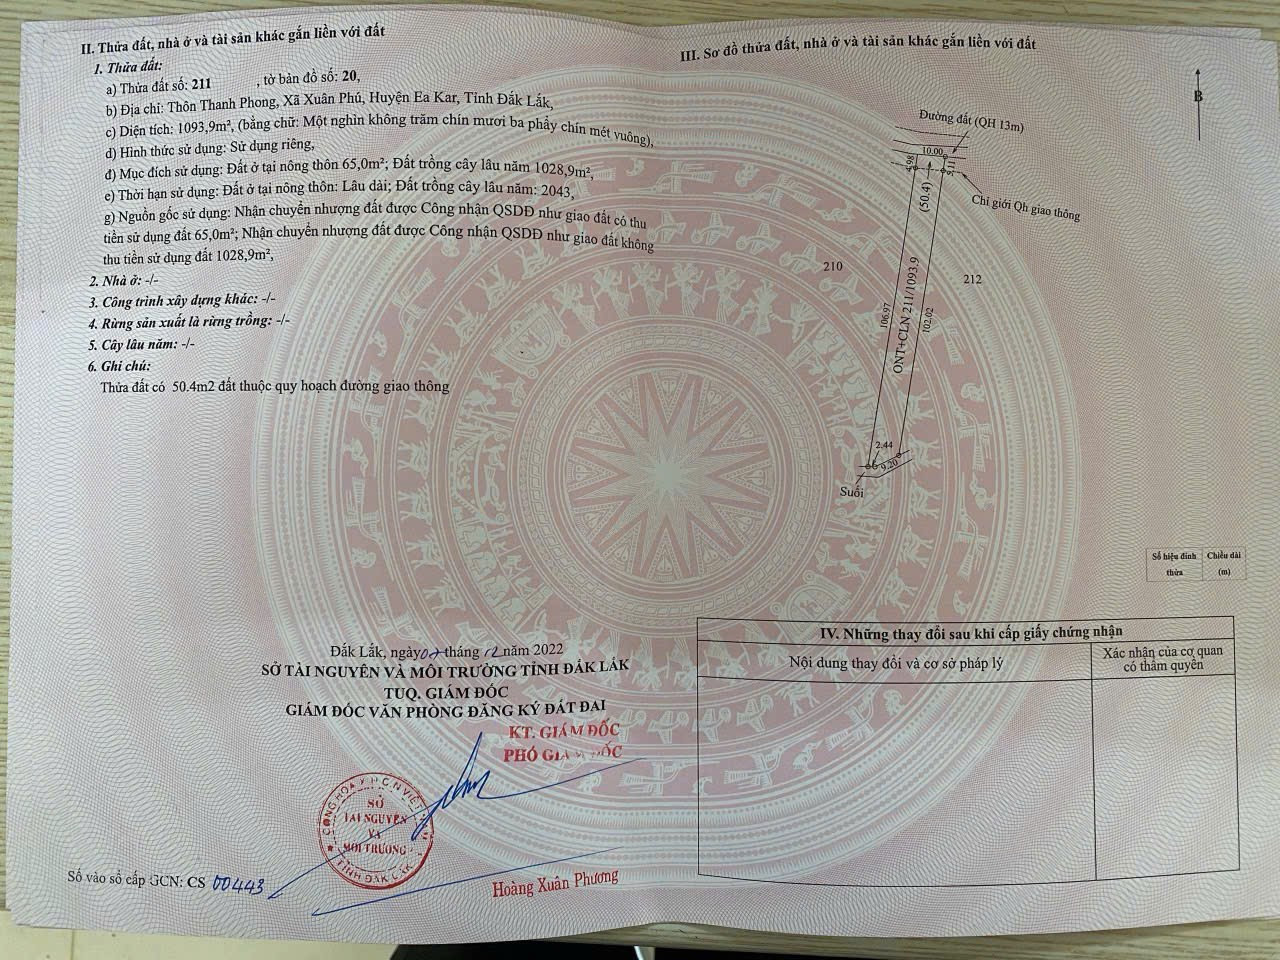 II. Thửa đất, nhà ở và tài sản khác gắn liền với đất
1. Thửa đất:
a) Thửa đất số: 211 , tờ bản đồ số: 20,
b) Địa chỉ: Thôn Thanh Phong, Xã Xuân Phú, Huyện Ea Kar, Tỉnh Đắk Lắk,
c) Diện tích: 1093,9m², (bằng chữ: Một nghìn không trăm chín mươi ba phẩy chín mét vuông),
d) Hình thức sử dụng: Sử dụng riêng,
đ) Mục đích sử dụng: Đất ở tại nông thôn 65,0m²; Đất trồng cây lâu năm 1028,9m²,
e) Thời hạn sử dụng: Đất ở tại nông thôn: Lâu dài; Đất trồng cây lâu năm: 2043,
g) Nguồn gốc sử dụng: Nhận chuyển nhượng đất được Công nhận QSDĐ như giao đất có thu
tiền sử dụng đất 65,0m²; Nhận chuyển nhượng đất được Công nhận QSDĐ như giao đất không
thu tiền sử dụng đất 1028,9m²,
2. Nhà ở: -/-
3. Công trình xây dựng khác: -/-
4. Rừng sản xuất là rừng trồng: -/-
5. Cây lâu năm: -/-
6. Ghi chú:
Thửa đất có 50.4m2 đất thuộc quy hoạch đường giao thông
Đắk Lắk, ngày 07 tháng 12 năm 2022
SỞ TÀI NGUYÊN VÀ MÔI TRƯỜNG TỈNH ĐẮK LẮK
TUQ. GIÁM ĐỐC
GIÁM ĐỐC VĂN PHÒNG ĐĂNG KÝ ĐẤT ĐAI
KT. GIÁM ĐỐC
PHÓ GIÁM ĐỐC
SỞ
TÀI NGUYÊN
VÀ
MÔI TRƯỜNG
TỈNH ĐẮK LẮK
Hoàng Xuân Phương
Số vào sổ cấp GCN: CS 00443
III. Sơ đồ thửa đất, nhà ở và tài sản khác gắn liền với đất
B
Đường đất (QH 13m)
10.00
4.98
(50.4)
Chỉ giới Qh giao thông
210
212
106.97
ONT+CLN 211/1093.9
102.02
2.44
9.20
Suối
Số hiệu đỉnh thửa
Chiều dài (m)
IV. Những thay đổi sau khi cấp giấy chứng nhận
Nội dung thay đổi và cơ sở pháp lý
Xác nhận của cơ quan
có thẩm quyền